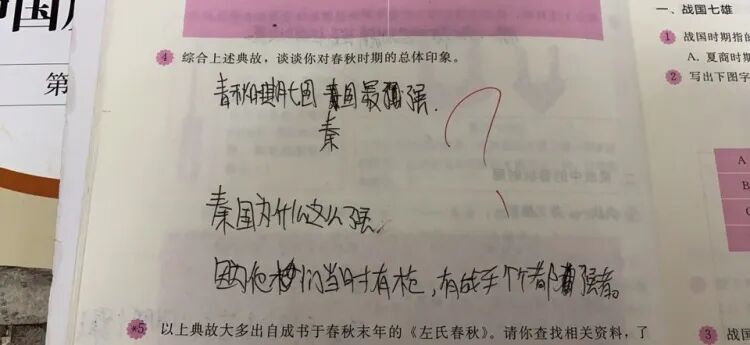 中国历
第
4 综合上述典故，谈谈你对春秋时期的总体印象。
春秋时期七国 国最强.
秦
秦国为什么这么强.
因为他们当时有枪，有战手个个都强者。
*5 以上典故大多出自成书于春秋末年的《左氏春秋》。请你查找相关资料，了
一、战国七雄
1 战国时期指的
A. 夏商时期
2 写出下图字
A
B
C
3 战国